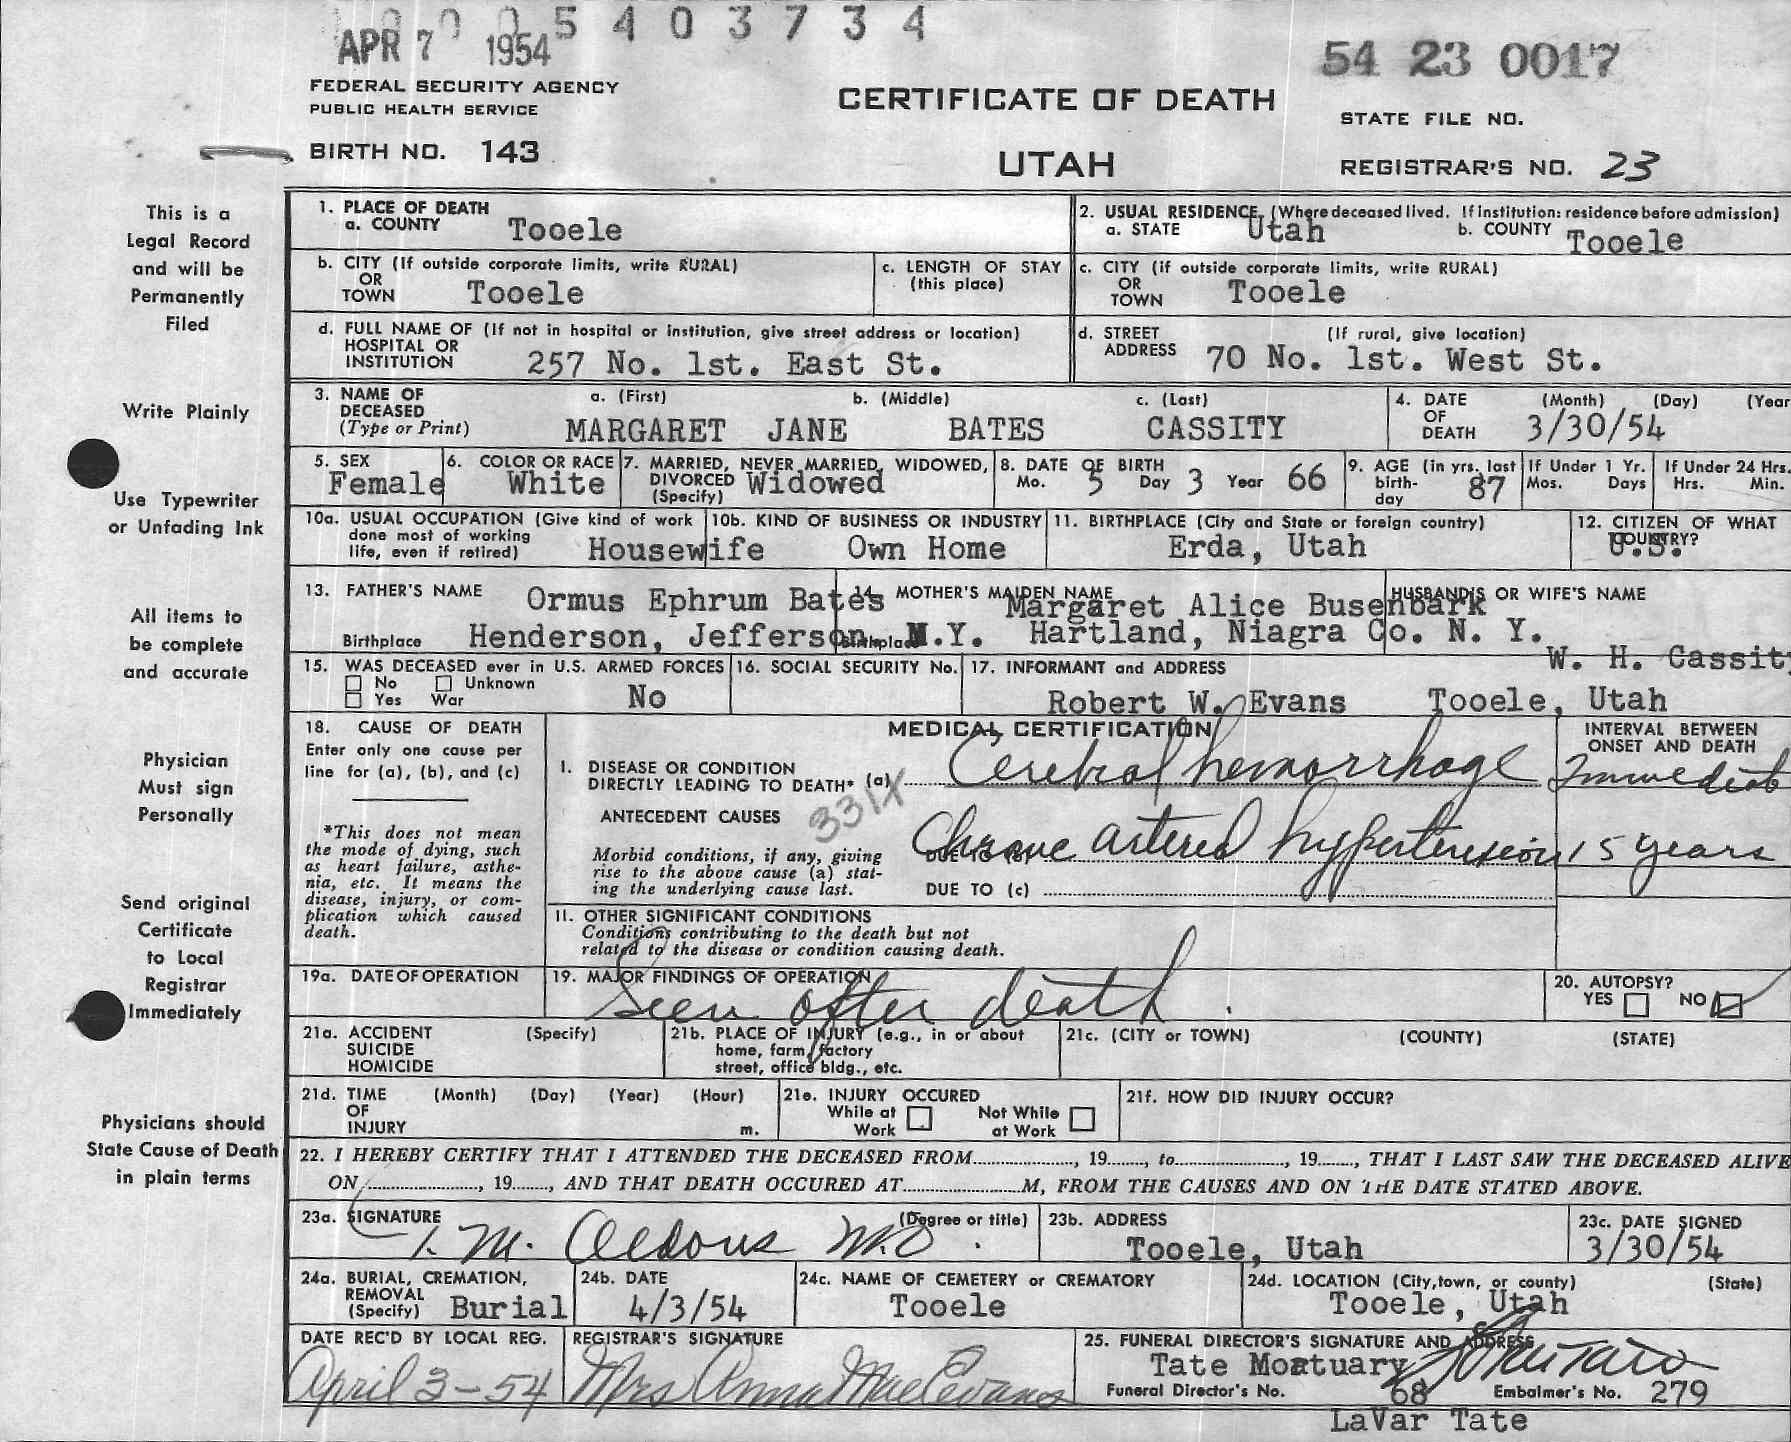 0 0 0 5 4 0 3 7 3 4
APR 7 1954
54 23 0017
FEDERAL SECURITY AGENCY
PUBLIC HEALTH SERVICE
CERTIFICATE OF DEATH
STATE FILE NO.
BIRTH NO. 143
UTAH
REGISTRAR'S NO. 23
This is a
Legal Record
and will be
Permanently
Filed
Write Plainly
Use Typewriter
or Unfading Ink
All items to
be complete
and accurate
Physician
Must sign
Personally
Send original
Certificate
to Local
Registrar
Immediately
Physicians should
State Cause of Death
in plain terms
1. PLACE OF DEATH
a. COUNTY Tooele
2. USUAL RESIDENCE (Where deceased lived. If institution: residence before admission)
a. STATE Utah b. COUNTY Tooele
b. CITY (If outside corporate limits, write RURAL)
OR
TOWN Tooele
c. LENGTH OF STAY
(this place)
c. CITY (if outside corporate limits, write RURAL)
OR
TOWN Tooele
d. FULL NAME OF (If not in hospital or institution, give street address or location)
HOSPITAL OR
INSTITUTION 257 No. 1st. East St.
d. STREET (If rural, give location)
ADDRESS 70 No. 1st. West St.
3. NAME OF DECEASED (Type or Print)
a. (First) b. (Middle) c. (Last)
MARGARET JANE BATES CASSITY
4. DATE OF DEATH (Month) (Day) (Year
3/30/54
5. SEX
Female
6. COLOR OR RACE
White
7. MARRIED, NEVER MARRIED, WIDOWED,
DIVORCED Widowed
(Specify)
8. DATE OF BIRTH
Mo. 5 Day 3 Year 66
9. AGE (in yrs. last
birth-
day 87
If Under 1 Yr.
Mos. Days
If Under 24 Hrs.
Hrs. Min.
10a. USUAL OCCUPATION (Give kind of work
done most of working
life, even if retired) Housewife
10b. KIND OF BUSINESS OR INDUSTRY
Own Home
11. BIRTHPLACE (City and State or foreign country)
Erda, Utah
12. CITIZEN OF WHAT
COUNTRY?
U.S.
13. FATHER'S NAME Ormus Ephrum Bates
Birthplace Henderson, Jefferson. N.Y.
14. MOTHER'S MAIDEN NAME
Margaret Alice Busenbark
Birthplace Hartland, Niagra Co. N. Y.
HUSBAND'S OR WIFE'S NAME
W. H. Cassity
15. WAS DECEASED ever in U.S. ARMED FORCES
No Unknown
Yes War No
16. SOCIAL SECURITY No.
17. INFORMANT and ADDRESS
Robert W. Evans Tooele, Utah
18. CAUSE OF DEATH
Enter only one cause per
line for (a), (b), and (c)
*This does not mean
the mode of dying, such
as heart failure, asthe-
nia, etc. It means the
disease, injury, or com-
plication which caused
death.
MEDICAL CERTIFICATION
I. DISEASE OR CONDITION
DIRECTLY LEADING TO DEATH* (a) Cerebral hemorrhage
331X
ANTECEDENT CAUSES
Morbid conditions, if any, giving
rise to the above cause (a) stat-
ing the underlying cause last.
DUE TO (b) arterial hypertension
DUE TO (c)
INTERVAL BETWEEN
ONSET AND DEATH
Immediate
15 years
II. OTHER SIGNIFICANT CONDITIONS
Conditions contributing to the death but not
related to the disease or condition causing death.
19a. DATE OF OPERATION
19. MAJOR FINDINGS OF OPERATION
Seen after death
20. AUTOPSY?
YES NO
21a. ACCIDENT (Specify)
SUICIDE
HOMICIDE
21b. PLACE OF INJURY (e.g., in or about
home, farm, factory
street, office bldg., etc.
21c. (CITY or TOWN) (COUNTY) (STATE)
21d. TIME (Month) (Day) (Year) (Hour)
OF
INJURY m.
21e. INJURY OCCURED
While at Work Not While at Work
21f. HOW DID INJURY OCCUR?
22. I HEREBY CERTIFY THAT I ATTENDED THE DECEASED FROM, 19, to, 19, THAT I LAST SAW THE DECEASED ALIVE
ON, 19, AND THAT DEATH OCCURED AT M, FROM THE CAUSES AND ON THE DATE STATED ABOVE.
23a. SIGNATURE (Degree or title)
M. Aldous M.D.
23b. ADDRESS
Tooele, Utah
23c. DATE SIGNED
3/30/54
24a. BURIAL, CREMATION,
REMOVAL
(Specify) Burial
24b. DATE
4/3/54
24c. NAME OF CEMETERY or CREMATORY
Tooele
24d. LOCATION (City, town, or county) (State)
Tooele, Utah
DATE REC'D BY LOCAL REG.
April 3-54
REGISTRAR'S SIGNATURE
Mrs Anna Mae Evans
25. FUNERAL DIRECTOR'S SIGNATURE AND ADDRESS
Tate Moatuary
Funeral Director's No. 68 Embalmer's No. 279
LaVar Tate